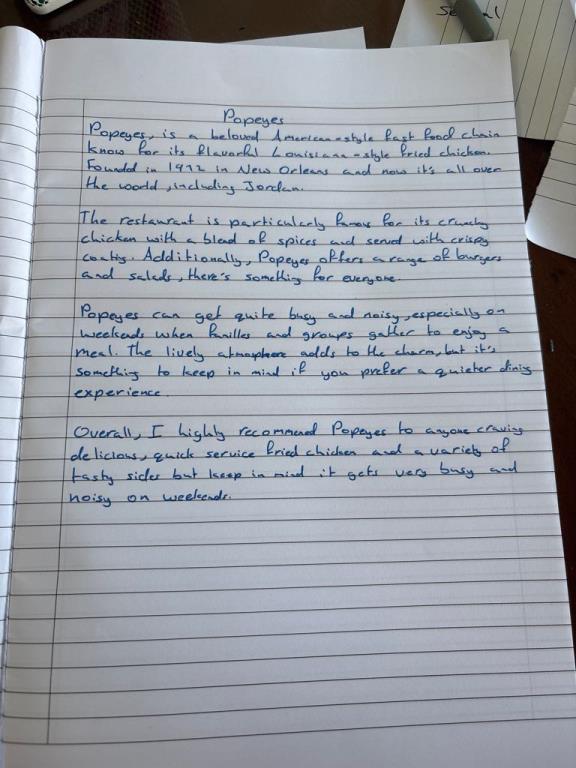 Popeyes
Popeyes, is a beloved American-style fast food chain
know for its flavorful Louisiana-style fried chicken.
Founded in 1972 in New Orleans and now it's all over
the world, including Jordan.
The restaurant is particularly famous for its crunchy
chicken with a blend of spices and served with crispy
coating. Additionally, Popeyes offers a range of burgers
and salads, there's something for everyone.
Popeyes can get quite busy and noisy, especially on
weekends when families and groups gather to enjoy a
meal. The lively atmosphere adds to the charm, but it's
something to keep in mind if you prefer a quieter dining
experience.
Overall, I highly recommened Popeyes to anyone craving
delicious, quick service fried chicken and a variety of
tasty sides but keep in mind it gets very busy and
noisy on weekends.